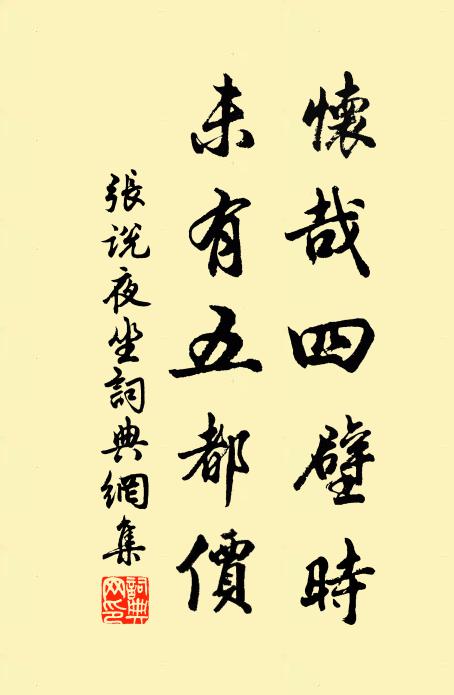 懷哉四壁時
未有五都價
張説夜坐詞典網集
詞典網印